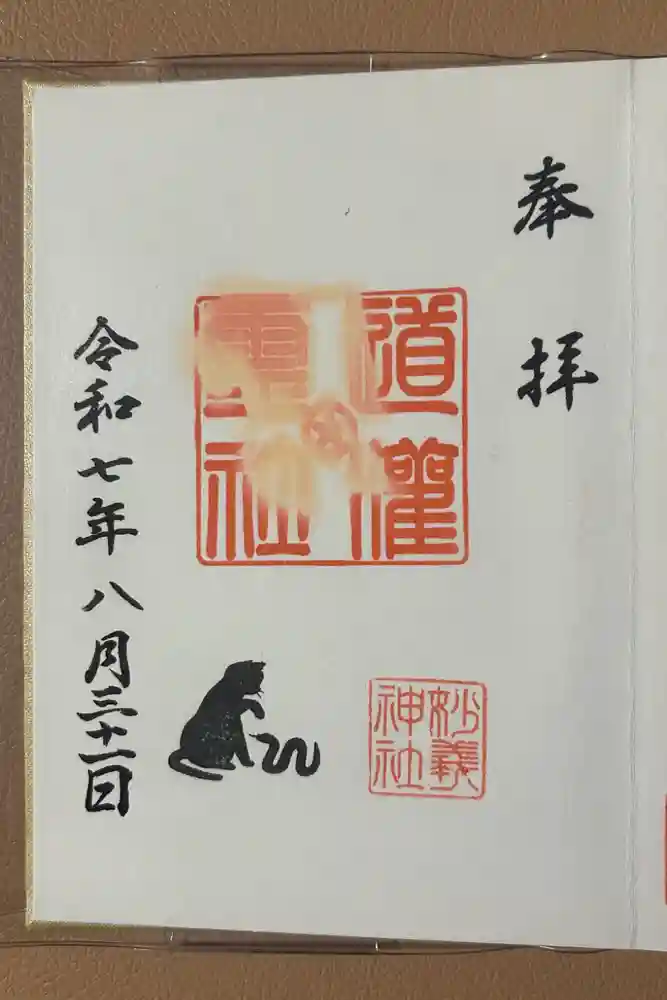 奉拝
道灌
霊社
妙義
神社
令和七年八月三十一日